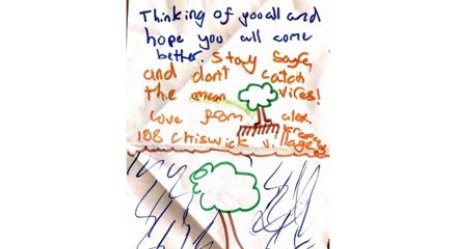 Thinking of you all and
hope you all come
better. Stay safe,
and dont catch
the mean vires!
love from alex
188 Chiswick village